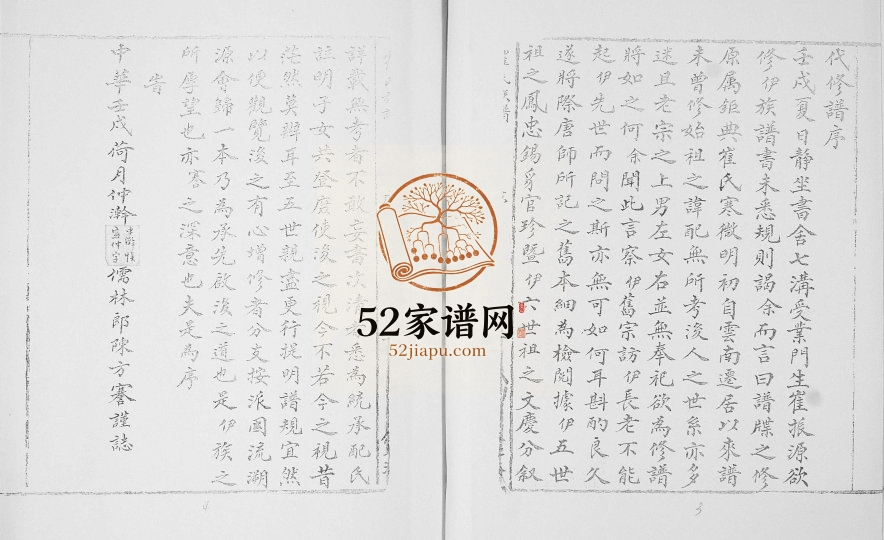 代修譜序
壬戌夏日靜坐書舍七溝受業門生崔振源欲
修伊族譜書未悉規則謁余而言曰譜牒之修
原属鉅典崔氏寒微明初自雲南遷居以來譜
未曾修始祖之諱配無所考後人之世系亦多
迷且老宗之上男左女右並無奉祀欲為修譜
將如之何余聞此言察伊舊宗訪伊長老不能
起伊先世而問之斯亦無可如何耳斟酌良久
遂將際唐師所記之舊本細為檢閱據伊五世
祖之鳳忠錫爭官珍暨伊六世祖之文慶分叙
崔氏族譜
3
詳載無考者不敢妄書次清悉為統承配氏
註明子女共登庶使後之視今不若今之視昔
茫然莫辨耳至五世親盡更行提明譜規宜然
以便觀覽後之有心增修者分支按派國流溯
源會歸一本乃為承先啟後之道也是伊族之
所厚望也亦寋之深意也夫是為序
旹
中華壬戌荷月仲瀚儒林郎陳方寋謹誌
4
52家谱网
52jiapu.com